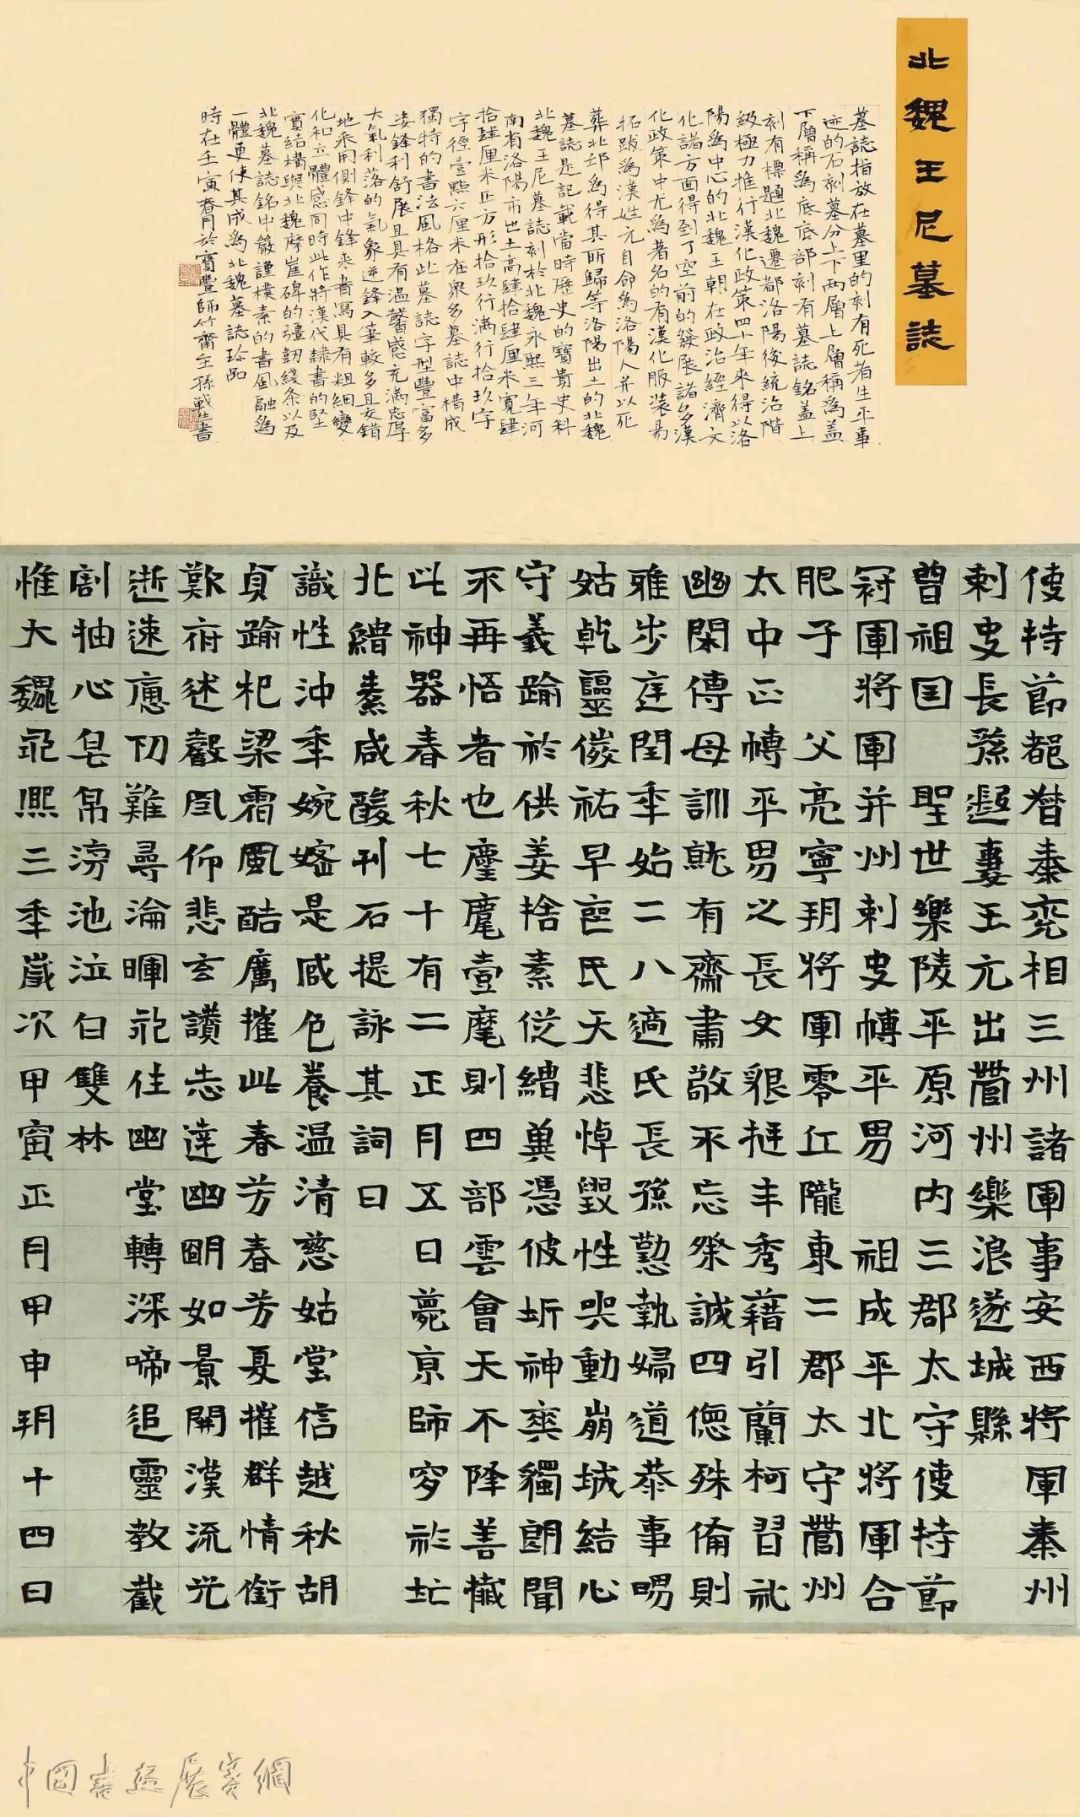 北魏王尼墓誌
墓誌指放在墓里的刻有死者生平事
迹的石刻墓分上下兩層上層稱為蓋
下層稱為底底部刻有墓誌銘蓋上
刻有標題北魏遷都洛陽後統治階
級極力推行漢化政策四十年來得以洛
陽為中心的北魏王朝在政治經濟文
化諸方面得到了空前的發展諸多漢
化政策中尤為著名的有漢化服裝易
拓跋為漢姓元自命為洛陽人并以死
葬北邙為得其所歸等洛陽出土的北魏
墓誌是記載當時歷史的寶貴史料
北魏王尼墓誌刻於北魏永熙三年河
南省洛陽市出土高肆拾肆厘米寬肆
拾肆厘米正方形拾玖行滿行拾玖字
字徑壹點六厘米在眾多墓誌中構成
獨特的書法風格此墓誌字型豐富多
姿鋒利舒展且具有温馨感充滿忠厚
大氣利落的氣象逆鋒入筆較多且交錯
地采用側鋒中鋒來書寫具有粗細變
化和立體感同時此作將漢代隸書的堅
實結構與北魏摩崖碑的彊韌綫条以及
北魏墓誌銘中嚴謹樸素的書風融為
一體更使其成為北魏墓誌珍品
時在壬寅春月於寶豐師竹齋主孫戰生書
使持節都督秦兖相三州諸軍事安西將軍秦州
刺史長孫遐妻王亢出營州樂浪遂城縣
曾祖囯 聖世樂陵平原河内三郡太守使持節
冠軍將軍并州刺史博平男 祖成平北將軍合
肥子 父亮寧朔將軍零丘隴東二郡太守營州
太中正博平男之長女貌挺丰秀藉引蘭柯習礼
幽閑傅母訓就有齋肅敬不忘祭誠四德殊備則
雅步庭閏年始二八適氏長孫懃執婦道恭事
姑乾靈儀祐早喪氏天悲悼毀性哭動崩城結心
守義踰於供姜捨素従縉奠憑彼圻神爽獨朗聞
不再悟者也麾壹麾則四部雲會天不降善
此神器春秋七十有二正月五日薨京師穸於北
北縉素咸酸刊石提詠其詞曰
識性沖年婉嫕是咸色養温清慈姑堂信越秋胡
貞踰杞梁霜風酷厲摧此春芳春芳夏摧群情銜
歎府述風仰悲玄讃志達幽朙如景開漢流光
逝速應切難尋淪暉祀住幽堂轉深啼追靈教截
割抽心皂帛滂池泣白雙林
惟大魏永熙三年歲次甲寅正月甲申朔十四日
中國書法展賽網